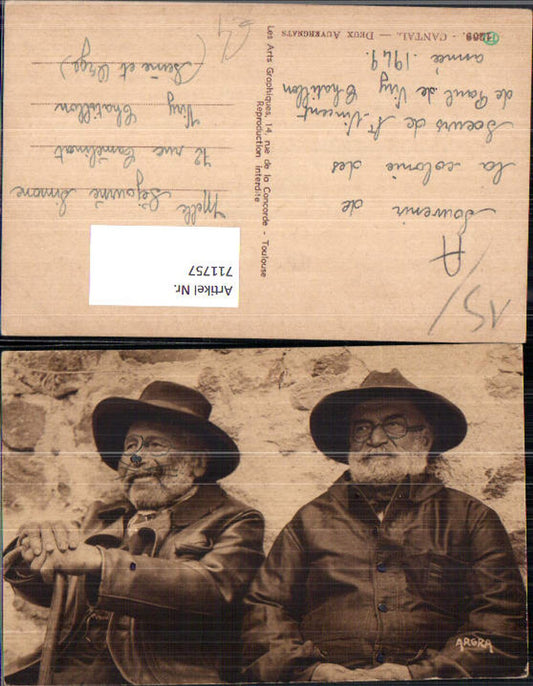 1269 - CANTAL. — DEUX AUVERGNATS
Souvenir de
la colonie des
Soeurs de St Vincent
de Paul de Viry Chatillon
année 1949
Les Arts Graphiques, 14, rue de la Concorde - Toulouse
Reproduction interdite
Melle Séjourné Simone
72 rue
Viry Chatillon
(Seine et Oise)
Artikel Nr.
711757
15/
A
ARGRA